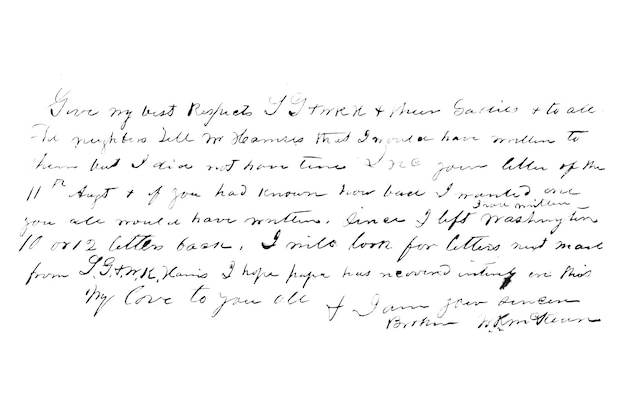 Give my best Respects S G & W K H & their Ladies & to all
the neighbors Tell Mr Harrises that I would have written to
them but I did not have time I rec your letter of the
11th Augt & if you had known how bad I wanted one
you all would have written. Since I left Washington
I have written
10 or 12 letters back. I will look for letters next mail
from S. G. & W. K. Harris I hope papa has recovered entirely ere this
My Love to you all & I am your sincere
Brother